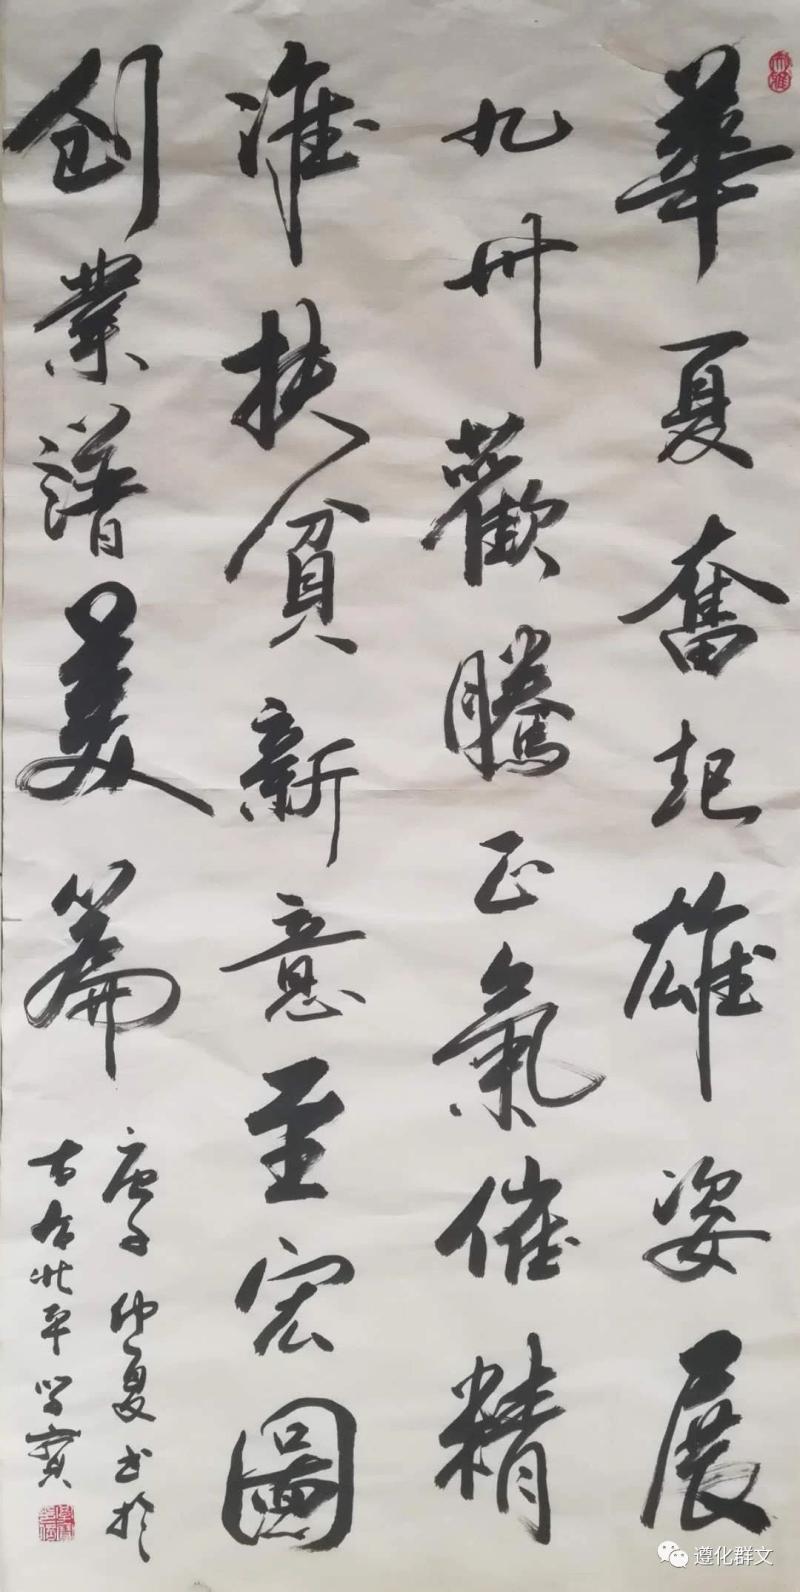 華夏奮起雄姿展
九州歡騰正氣催精
准扶貧新意至宏圖
创業譜美篇
庚子仲夏书於
古右北平学寳
遵化群文